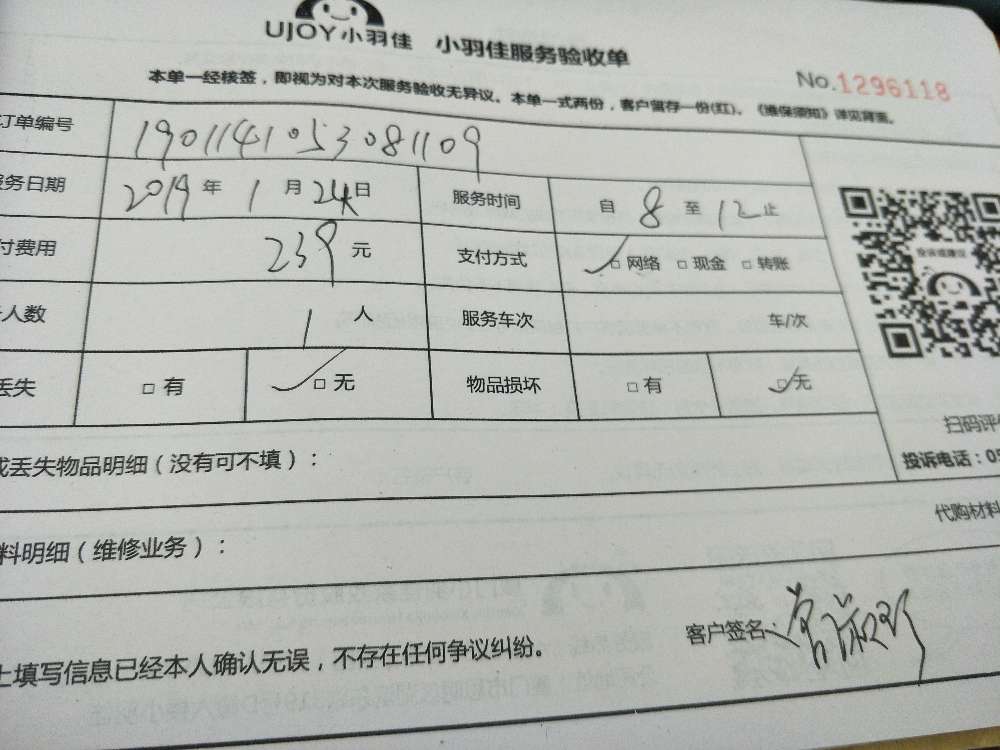 UJOY小羽佳 小羽佳服务验收单
No.1296118
本单一经核签，即视为对本次服务验收无异议。本单一式两份，客户留存一份(红)。《维保须知》详见背面。
订单编号 1901141053081109
务日期 2019年1月24日 服务时间 自8至12止
付费用 239元 支付方式 □网络 □现金 □转账
人数 1人 服务车次 车/次
丢失 □有 □无 物品损坏 □有 □无
扫码评价
投诉电话：05
或丢失物品明细（没有可不填）：
代购材料
料明细（维修业务）：
上填写信息已经本人确认无误，不存在任何争议纠纷。
客户签名：